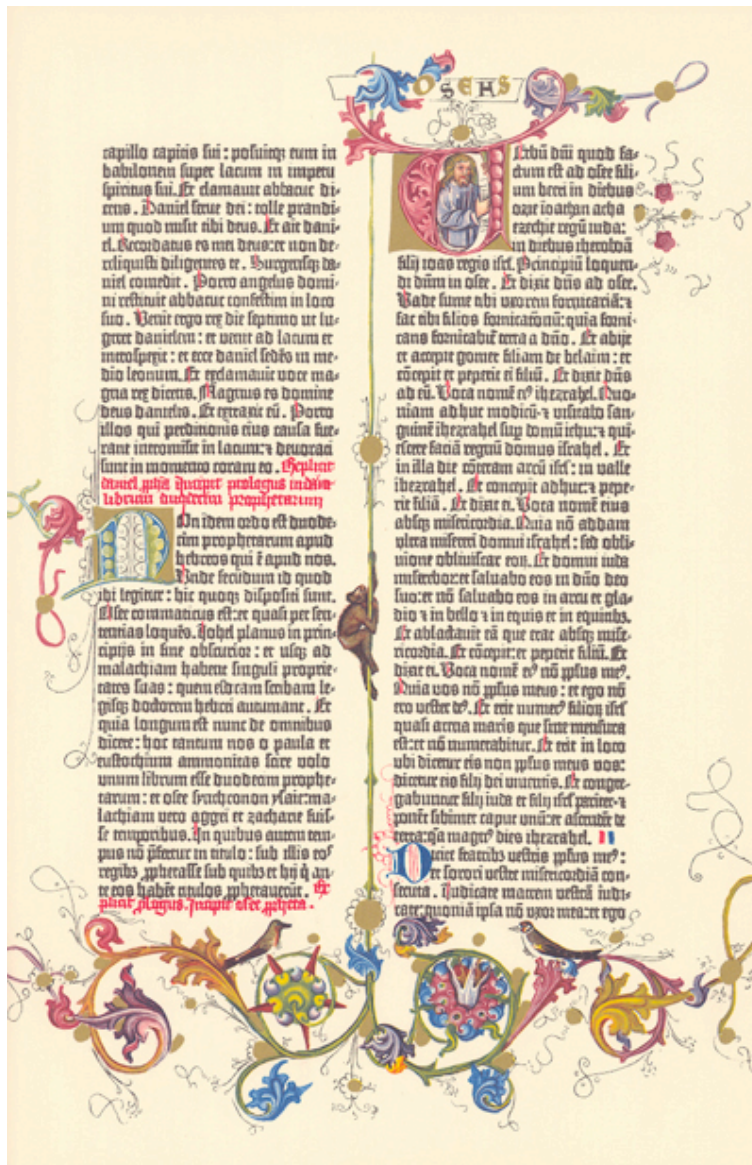 OSEAS
capillo capitis sui : posuitq; eum in
babilonem super lacum in impetu
spiritus sui. Et clamavit abbacuc di-
cens. Daniel serve dei : tolle prandi-
um quod misit tibi deus. Et ait dani-
el. Recordatus es mei deus: et non de-
reliquisti diligentes te. Surgensq; da-
niel comedit. Porro angelus domi-
ni restituit abbacuc confestim in loco
suo. Venit ergo rex die septimo ut lu-
geret danielem : et venit ad lacum et
introspexit : et ecce daniel sedēs in me-
dio leonum. Et exclamavit voce ma-
gna rex dicens. Magnus es domine
deus danielis. Et extraxit eū. Porro
illos qui perditionis eius causa fue-
rant intromisit in lacum: et devorati
sunt in momento coram eo. Explicit
daniel ꝓpha Incipit prologus in
librum duodecim prophetarum
Non idem ordo est duode-
cim prophetarum apud
hebreos qui ē apud nos.
Unde secūdum id quod
ibi legitur : hic quoq; dispositi sunt.
Osee commaticus est: et quasi per sen-
tentias loquēs. Johel planus in prin-
cipijs in fine obscurior : et usq; ad
malachiam habent singuli proprie-
tates suas : quem esdram scribam le-
gisq; doctorem hebrei autumant. Et
quia longum est nunc de omnibus
dicere : hoc tantum vos o paula et
eustochium ammonitas scire volo
unum librum esse duodecim prophe-
tarum : et osee synchronon ysaie: ma-
lachiam vero aggei et zacharie fuis-
se temporibus. In quibus autem tem-
pus nō p̄fertur in titulo : sub illis eos
regibꝫ ꝓphetasse sub quibꝫ et hij q̇ an-
te eos habēt titulos ꝓphetaverūt. Ex-
plicit ꝓlogus. Incipit osee ꝓpheta.
Verbū dn̄i quod fa-
ctum est ad osee fili-
um beeri in diebus
ozie ioathan achaz
ezechie regū iuda:
in diebus iheroboā
filij ioas regis isrl. Principiū loquen-
di dn̄m in osee. Et dixit dn̄s ad osee.
Vade sume tibi uxorem fornicariā: et
fac tibi filios fornicationū: quia forni-
cans fornicabit̄ terra a dn̄o. Et abijt
et accepit gomer filiam debelaim : et
cōcepit et peperit ei filiū. Et dixit dn̄s
ad eū. Voca nomē eiꝰ ihezrahel. Quo-
niam adhuc modicū: et visitabo san-
guinē ihezrahel sup̱ domū iehu: et qui-
escere faciā regnū domus israhel. Et
in illa die cōteram arcū isrl : in valle
ihezrahel. Et concepit adhuc: et pepe-
rit filiā. Et dixit ei. Voca nomē eius
absq; misericordia. Quia nō addam
ultra misereri domui israhel : sed obli-
vione obliviscar eoꝝ. Et domui iuda
miserebor: et salvabo eos in dn̄o deo
suo: et nō salvabo eos in arcu et gla-
dio et in bello et in equis et in equitibꝫ.
Et ablactavit eā que erat absq; mise-
ricordia. Et cōcepit: et peperit filiū. Et
dixit ei. Voca nomē eiꝰ nō ppl̄us meꝰ.
Quia vos nō ppl̄us meus : et ego nō
ero vester deꝰ. Et erit numerꝰ filioꝝ isrl
quasi arena maris que sine mensura
est: et nō numerabitur. Et erit in loco
ubi dicetur eis non ppl̄us meus vos:
dicetur eis filij dei viventis. Et congre-
gabuntur filij iuda et filij isrl pariter: et
ponēt sibimet caput unū: et ascendēt de
terra: q̄a magnꝰ dies ihezrahel. II
Dicite fratribꝫ vestris ppl̄us meꝰ:
et sorori vestre misericordiā con-
secuta. Iudicate matrem vestrā iudi-
cate: quoniā ipsa nō uxor mea: et ego